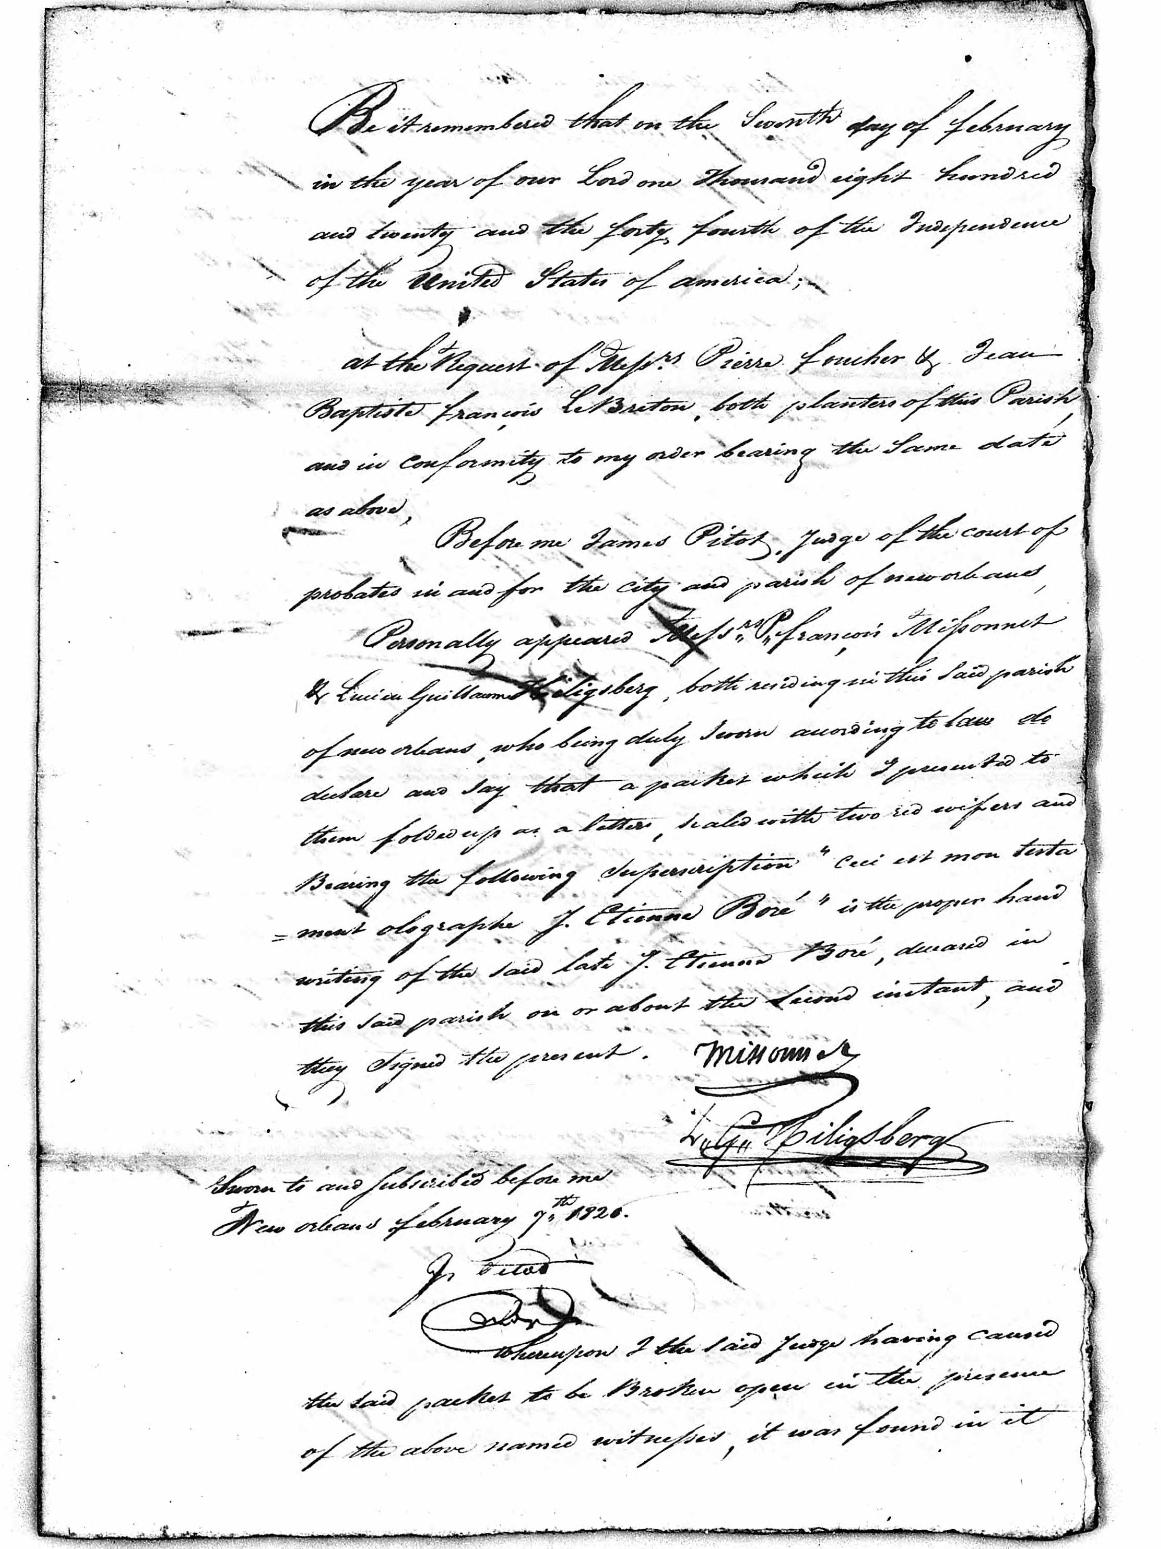 Be it remembered that on the Seventh day of february
in the year of our Lord one Thousand eight hundred
and twenty and the forty fourth of the Independence
of the United States of america;
at the Request of Messrs. Pierre foucher & Jean
Baptiste françois LeBreton, both planters of this Parish,
and in conformity to my order bearing the Same date
as above,
Before me James Pitot, Judge of the court of
probates in and for the city and parish of neworleans,
Personally appeared Messrs. P. françois Missonnet
& Lucien Guillaume Hiligsberg, both residing in this Said parish
of new orleans, who being duly Sworn according to law do
declare and Say that a packet which I presented to
them folded up as a letter, sealed with two red wifers and
Bearing the following Superscription "ceci est mon testa
=ment olographe J. Etienne Boré" is the proper hand
writing of the Said late J. Etienne Boré, deceased in
this Said parish on or about the Second instant, and
they Signed the present.
Missonnet
L. G. Hiligsberg
Sworn to and Subscribed before me
New orleans february 7th 1820.
J. Pitot
Whereupon I the Said Judge having caused
the Said packet to be Broken open in the presence
of the above named witnesses, it was found in it